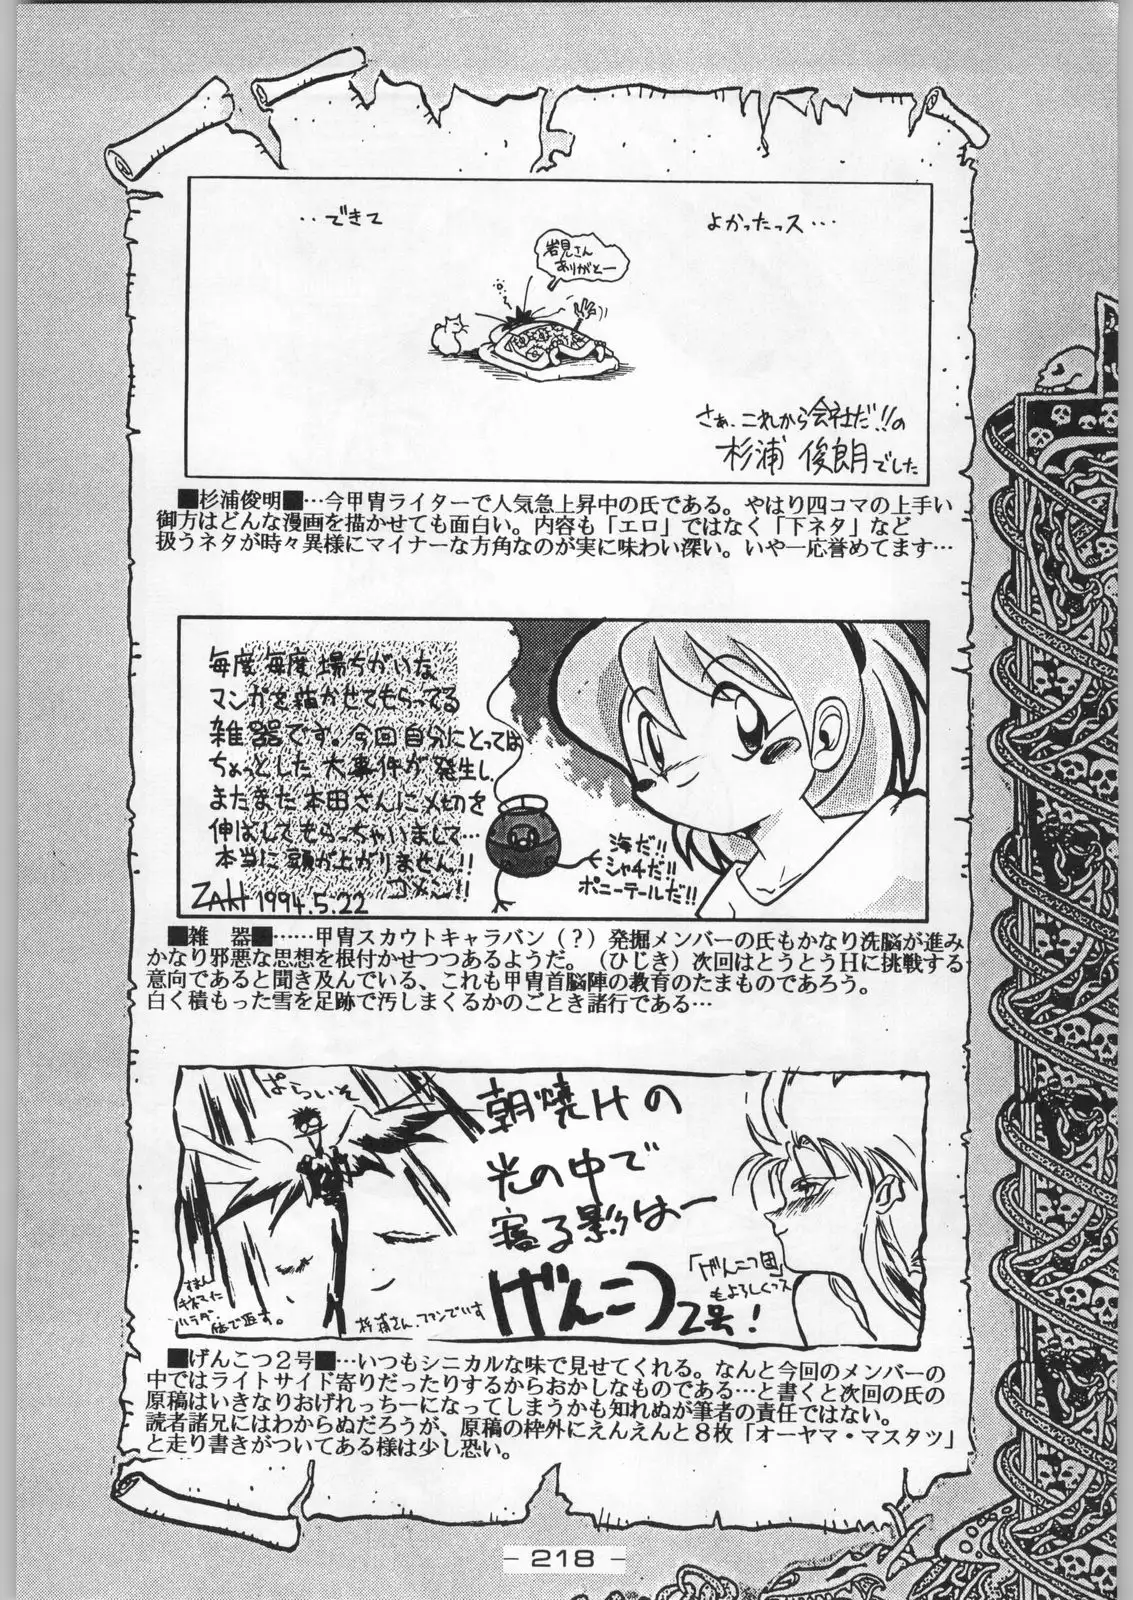 ‥できて
よかったっス…
岩見さん
ありがとー
さぁ、これから会社だ!!の
杉浦 俊朗でした
■杉浦俊明■…今甲冑ライターで人気急上昇中の氏である。やはり四コマの上手い
御方はどんな漫画を描かせても面白い。内容も「エロ」ではなく「下ネタ」など
扱うネタが時々異様にマイナーな方角なのが実に味わい深い。いや一応誉めてます…
毎度毎度場ちがいな
マンガを描かせてもらってる
雑器です。今回自分にとっては
ちょっとした大事件が発生し、
またまた本田さんに〆切を
伸ばしてもらっちゃいまして…
本当に頭が上がりません!!
ゴメン!!
ZAKI 1994.5.22
海だ!!
シャチだ!!
ポニーテールだ!!
■雑　器■……甲冑スカウトキャラバン（？）発掘メンバーの氏もかなり洗脳が進み
かなり邪悪な思想を根付かせつつあるようだ。（ひじき）次回はとうとうHに挑戦する
意向であると聞き及んでいる、これも甲冑首脳陣の教育のたまものであろう。
白く積もった雪を足跡で汚しまくるかのごとき諸行である…
ぱらいそ
朝焼けの
光の中で
寝る影はー
げんこつ2号!
「げんこつ団」
もよろしくっス
杉浦さん、ファンでいす
■げんこつ２号■…いつもシニカルな味で見せてくれる。なんと今回のメンバーの
中ではライトサイド寄りだったりするからおかしなものである…と書くと次回の氏の
原稿はいきなりおげれっちーになってしまうかも知れぬが筆者の責任ではない。
読者諸兄にはわからぬだろうが、原稿の枠外にえんえんと８枚「オーヤマ・マスタツ」
と走り書きがついてある様は少し恐い。
- 218 -